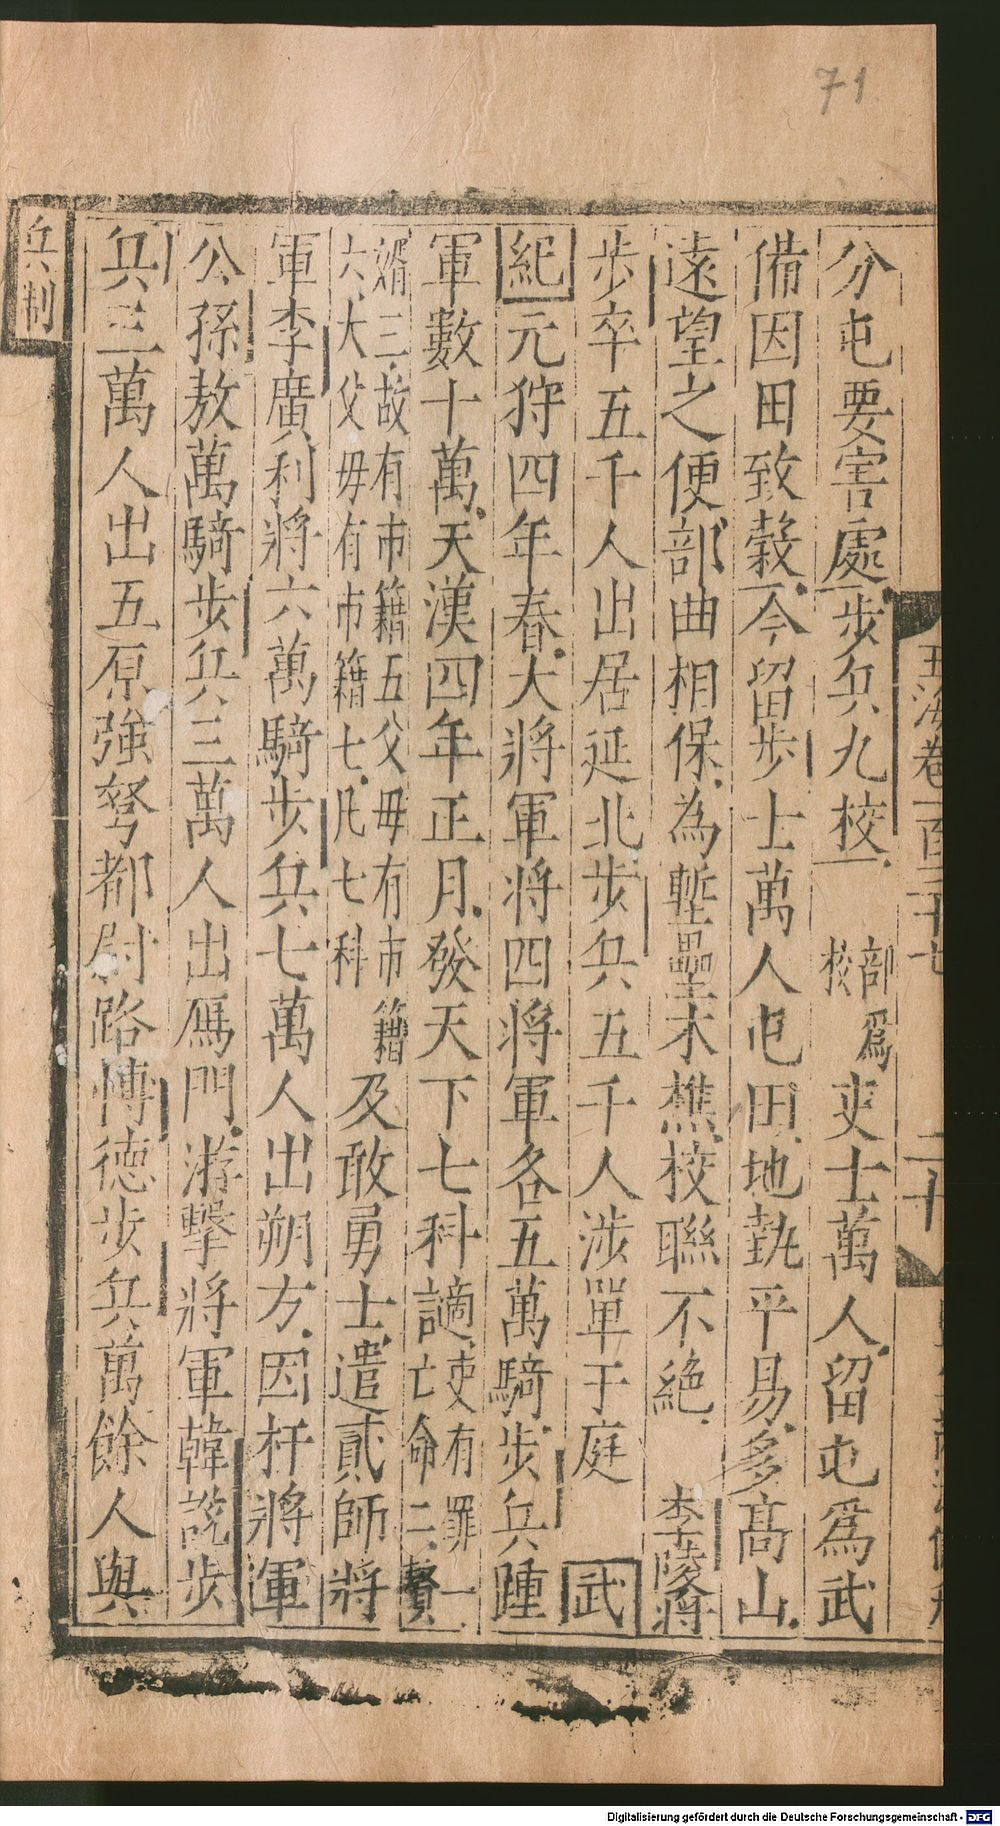 71
玉海卷一百三十七 二十
分屯要害處步兵九校 部爲校 吏士萬人留屯爲武
備因田致穀今留步士萬人屯田地埶平易多高山
遠望之便部曲相保為塹壘木樵校聯不絶 李陵將
步卒五千人出居延北步兵五千人涉單于庭 武
紀元狩四年春大將軍將四將軍各五萬騎步兵踵
軍數十萬天漢四年正月發天下七科讁吏有罪一亡命二贅
婿三故有市籍五父毋有市籍六大父毋有市籍七凡七科及敢勇士遣貳師將
軍李廣利將六萬騎步兵七萬人出朔方因杅將軍
公孫敖萬騎步兵三萬人出鴈門游擊將軍韓說步
兵三萬人出五原強弩都尉路愽德步兵萬餘人與
兵制
Digitalisierung gefördert durch die Deutsche Forschungsgemeinschaft - DFG